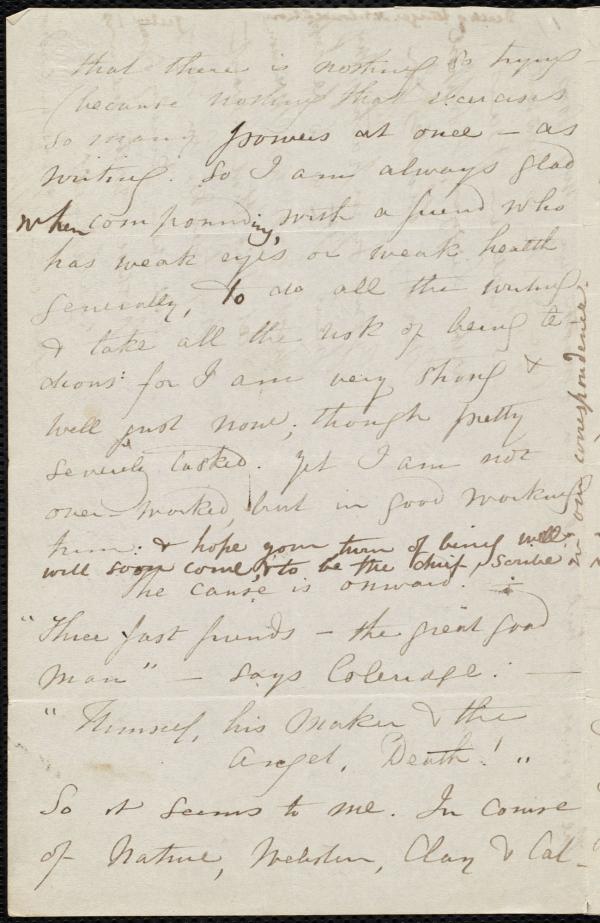 that there is nothing so trying -
(because nothing that exercises
so many powers at once - as
writing. So I am always glad
when compounding, with a friend who
has weak eyes or weak health
generally, to do all the writing
& take all the risk of being te-
dious: for I am very strong &
well just now; though pretty
severely tasked. Yet I am not
over-worked, but in good working
trim: & hope your turn of being well,
will soon come, & to be the chief scribe
in our correspondence.
The cause is onward.
"Three fast friends - the great good
man" - says Coleridge: -
"Himself, his Maker & the
Angel, Death!"
So it seems to me. In course
of Nature, Webster, Clay & Cal-